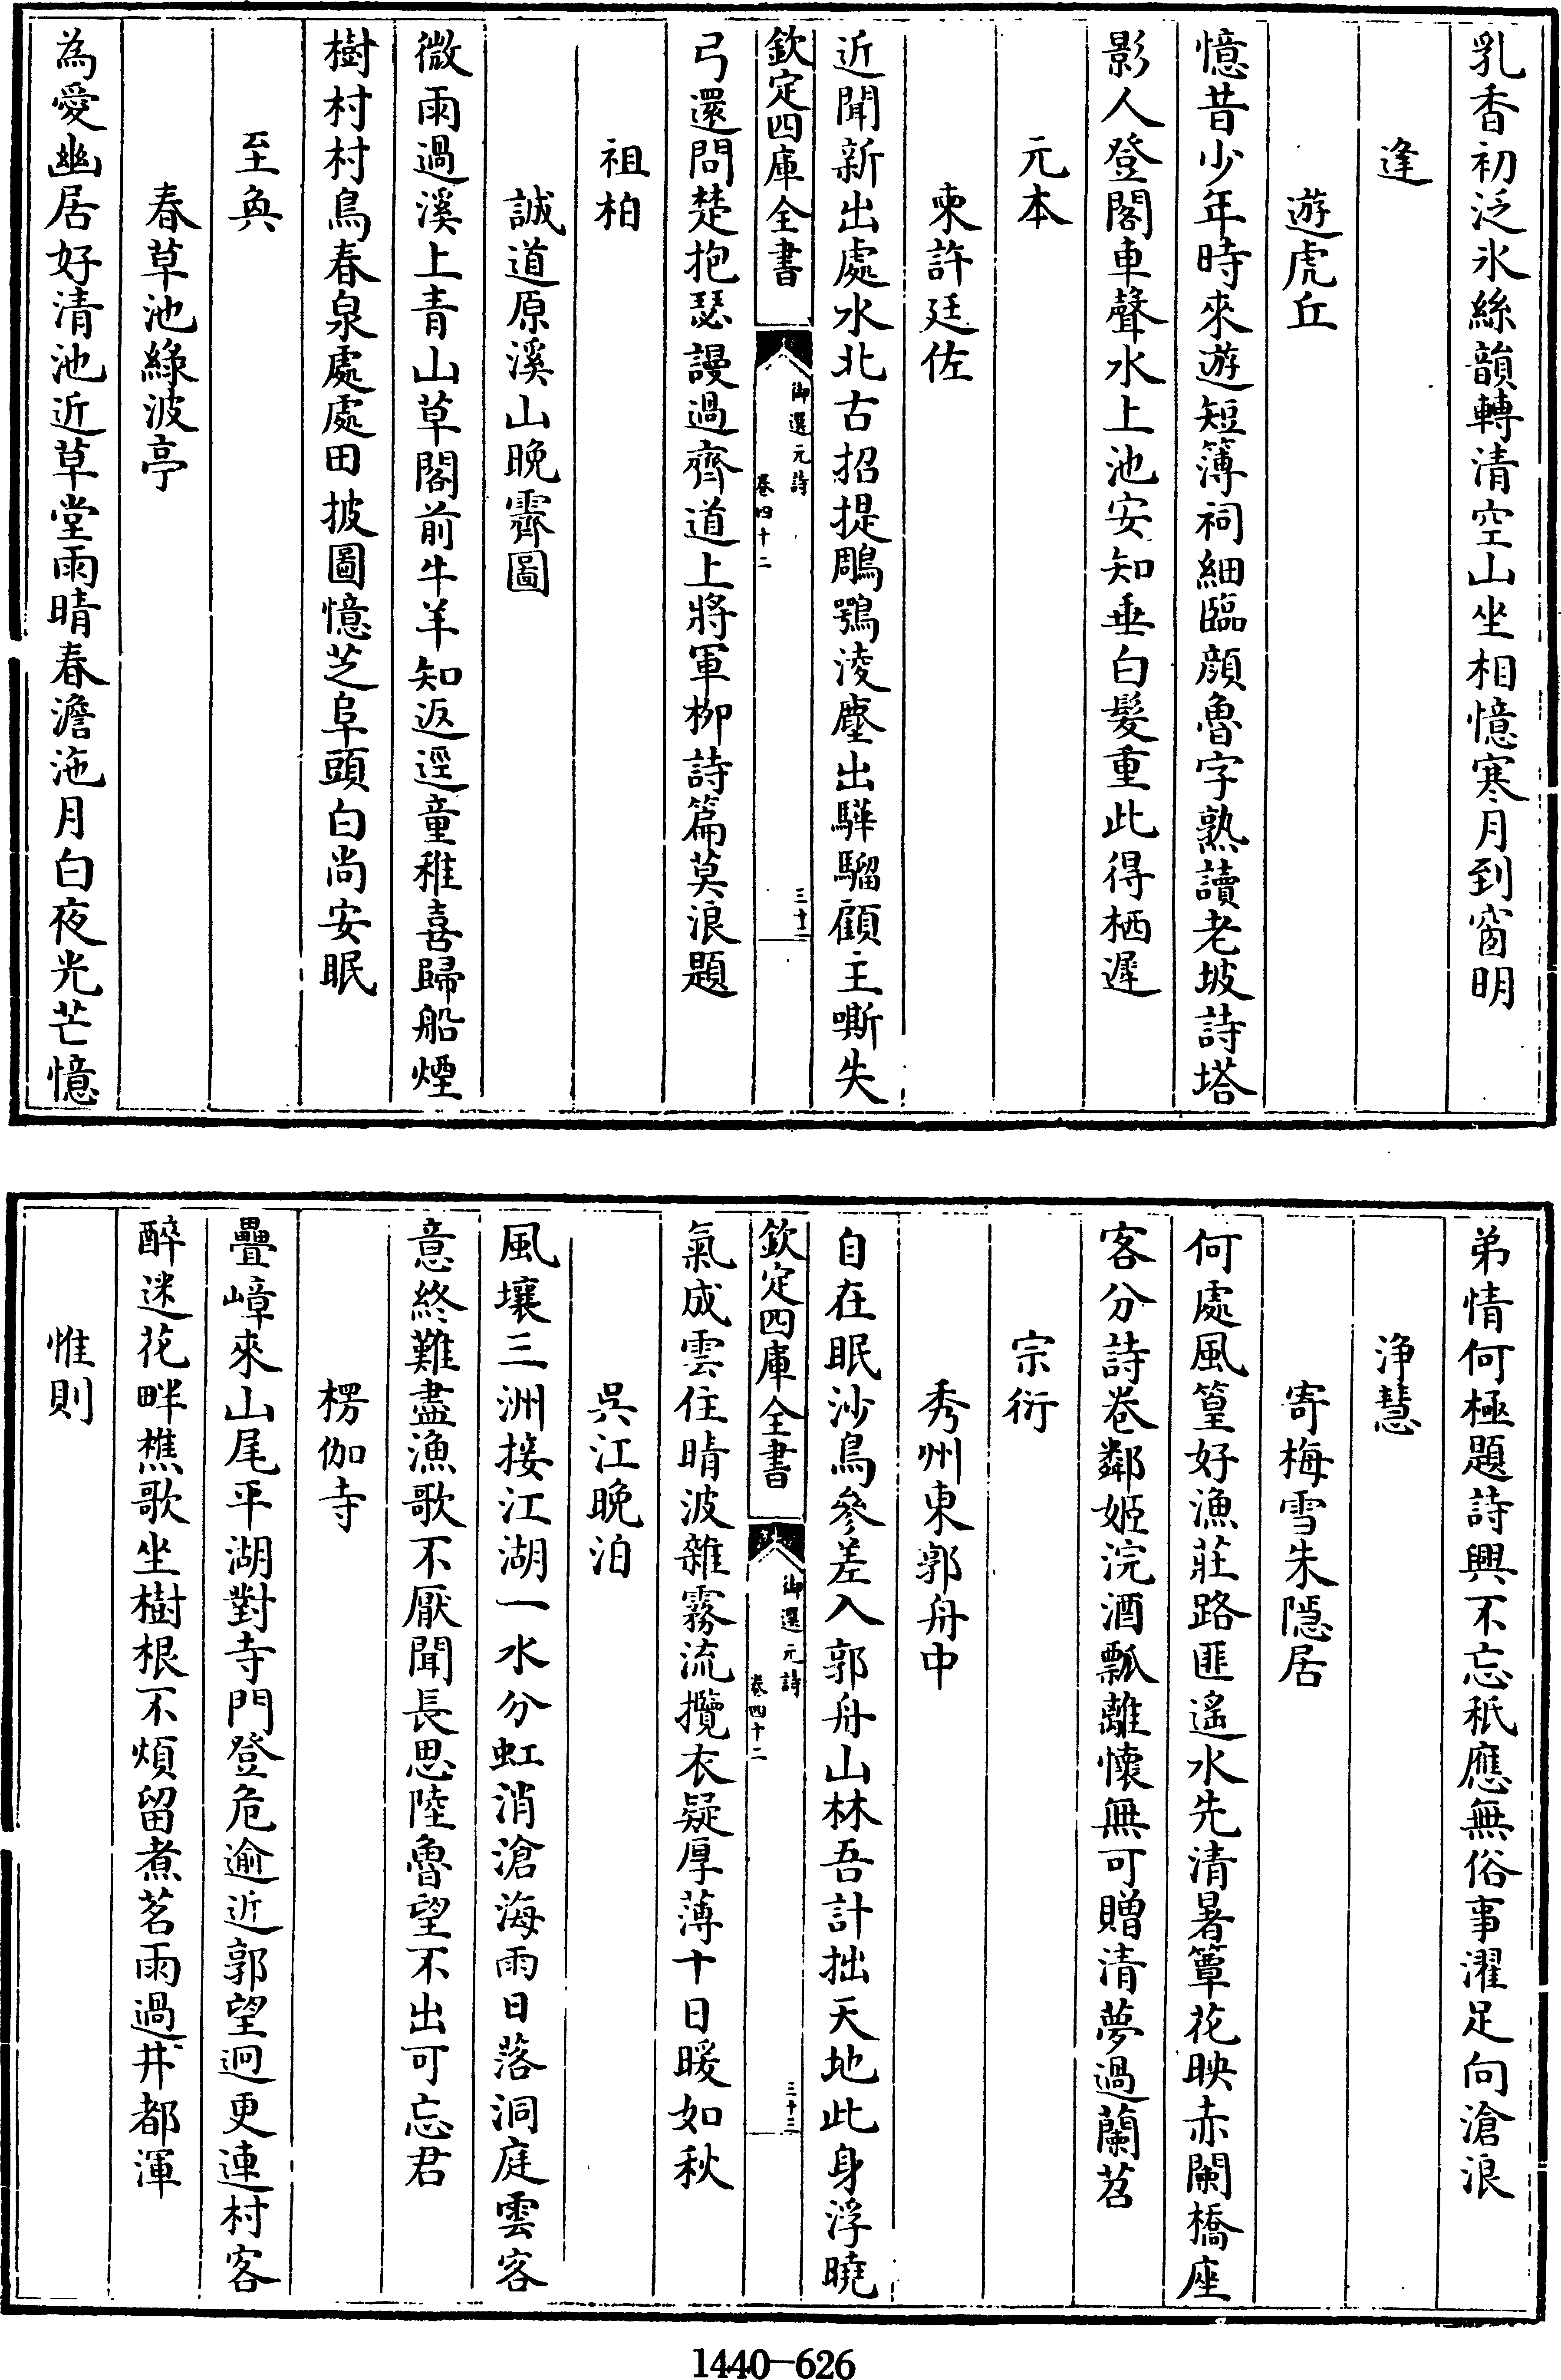 乳香初泛氷絲韻轉清空山坐相憶寒月到窗明
逢
遊虎丘
憶昔少年時來遊短簿祠細臨顔魯字熟讀老坡詩塔
影人登閣車聲水上池安知垂白髮重此得栖遲
元本
柬許廷佐
近聞新出處水北古招提鵰鶚淩塵出驊騮顧主嘶失
欽定四庫全書
御選元詩
卷四十二
三十二
弓還問楚抱瑟謾過齊道上將軍栁詩篇莫浪題
祖柏
誠道原溪山晚霽圖
微雨過溪上青山草閣前牛羊知返逕童稚喜歸船煙
樹村村鳥春泉處處田披圖憶芝阜頭白尚安眠
至奐
春草池綠波亭
為愛幽居好清池近草堂雨晴春澹沲月白夜光芒憶
弟情何極題詩興不忘秖應無俗事濯足向滄浪
浄慧
寄梅雪朱隱居
何處風篁好漁莊路匪遙水先清暑簟花映赤闌橋座
客分詩卷鄰姬浣酒瓢離懷無可贈清夢過蘭苕
宗衍
秀州東郭舟中
自在眠沙鳥參差入郭舟山林吾計拙天地此身浮曉
欽定四庫全書
御選元詩
卷四十二
三十三
氣成雲住晴波雜霧流攬衣疑厚薄十日暖如秋
吳江晚泊
風壤三洲接江湖一水分虹消滄海雨日落洞庭雲客
意終難盡漁歌不厭聞長思陸魯望不出可忘君
楞伽寺
疊嶂來山尾平湖對寺門登危逾近郭望迥更連村客
醉迷花畔樵歌坐樹根不煩留煮茗雨過井都渾
惟則
1440—626